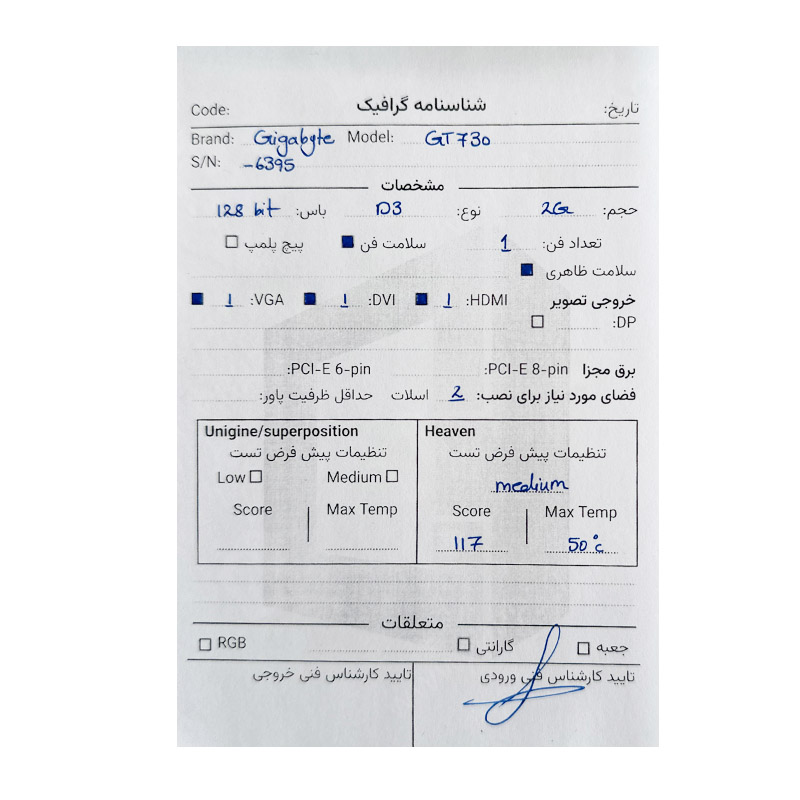 Code: شناسنامه گرافیک تاریخ:
Brand: Gigabyte Model: GT730
S/N: -6395
مشخصات
حجم: 2G نوع: D3 باس: 128 bit
تعداد فن: 1 سلامت فن پیچ پلمپ
سلامت ظاهری
خروجی تصویر HDMI: 1 DVI: 1 VGA: 1
DP:
برق مجزا PCI-E 8-pin: PCI-E 6-pin:
فضای مورد نیاز برای نصب: 2 اسلات حداقل ظرفیت پاور:
Unigine/superposition Heaven
تنظیمات پیش فرض تست تنظیمات پیش فرض تست
Low Medium medium
Score Max Temp Score Max Temp
117 50°c
متعلقات
جعبه گارانتی RGB
تایید کارشناس فنی ورودی تایید کارشناس فنی خروجی